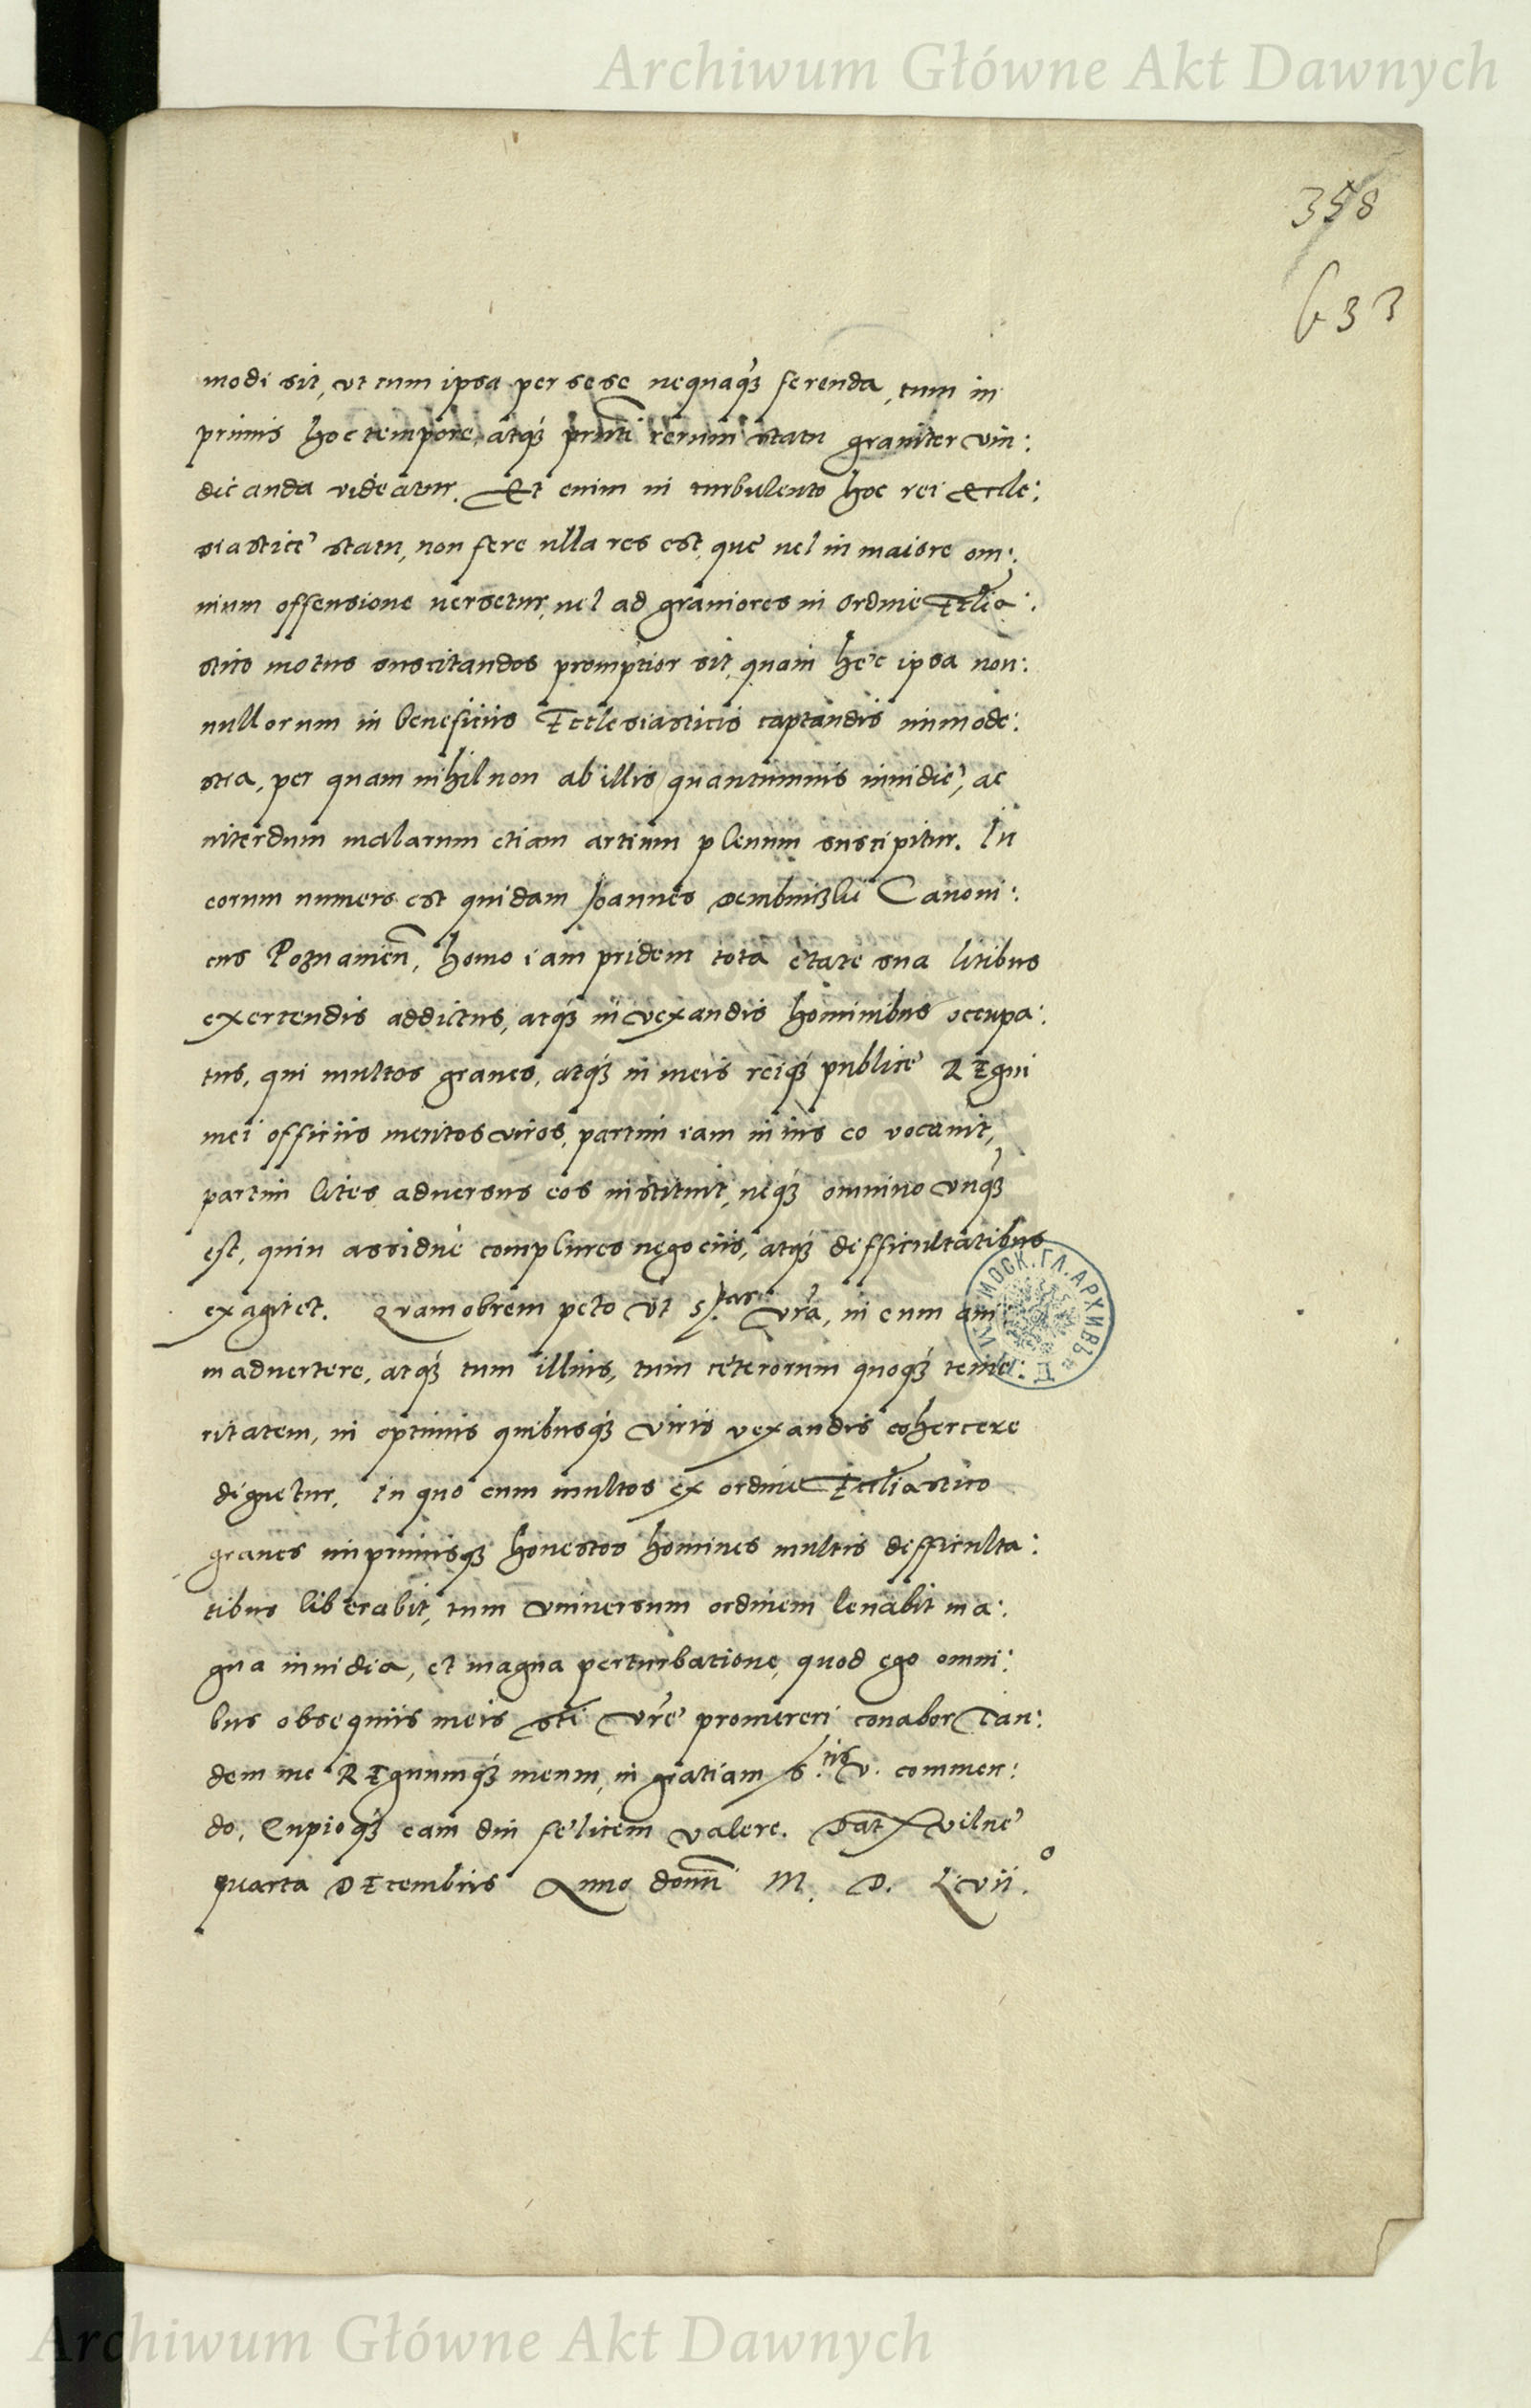 Archiwum Główne Akt Dawnych
358
633
modi sit, ut tum ipsa per sese nequaq₃ ferenda, tum in
primis hoc tempore, atq₃ pñti rerum statu grauiter vin:
dicanda videatur. Et enim in turbulento hoc rei Eccle:
siasticę statu, non fere ulla res est, quę uel in maiore om:
nium offensione uersetur, uel ad grauiores in ordine Ecclia:
stico motus suscitandos promptior sit, quam hęc ipsa non:
nullorum in beneficiis Ecclesiasticis captandis immode:
stia, per quam nihil non ab illis quantumuis inuidię, ac
interdum malarum etiam artium plenum suscipitur. In
eorum numero est quidam Joannes Canoni:
cus Poznanieñ, homo iam pridem tota ętate sua litibus
exercendis addictus, atq₃ in vexandis hominibus occupa:
tus, qui multos graues, atq₃ in meis reiq₃ publicę REgni
mei officiis meritos viros, partim iam in ius eo vocauit,
partim lites aduersus eos instituit, neq₃ omnino vnq₃
est, quin assiduè complures negociis, atq₃ difficultatibus
exagitet. Quamobrem peto ut S.tas vrã, in eum ani
maduertere, atq₃ tum illius, tum cęterorum quoq₃ teme:
ritatem, in optimis quibusq₃ viris vexandis cohercere
dignetur, in quo cum multos ex ordine Eccliastico
graues imprimisq₃ honestos homines multis difficulta:
tibus liberabit, tum vniuersum ordinem leuabit ma:
gna inuidia, et magna perturbatione, quod ego omni:
bus obsequiis meis Sti vrę promereri conabor Tan:
dem me REgnumq₃ meum, in gratiam S.tis v. commen:
do, Cupioq₃ eam diu fęlicem valere. Dat Vilnę
quarta DEcembris Anno domi M. D. Lvii.o
МОСК. ГЛ. АРХИВЪ
Archiwum Główne Akt Dawnych